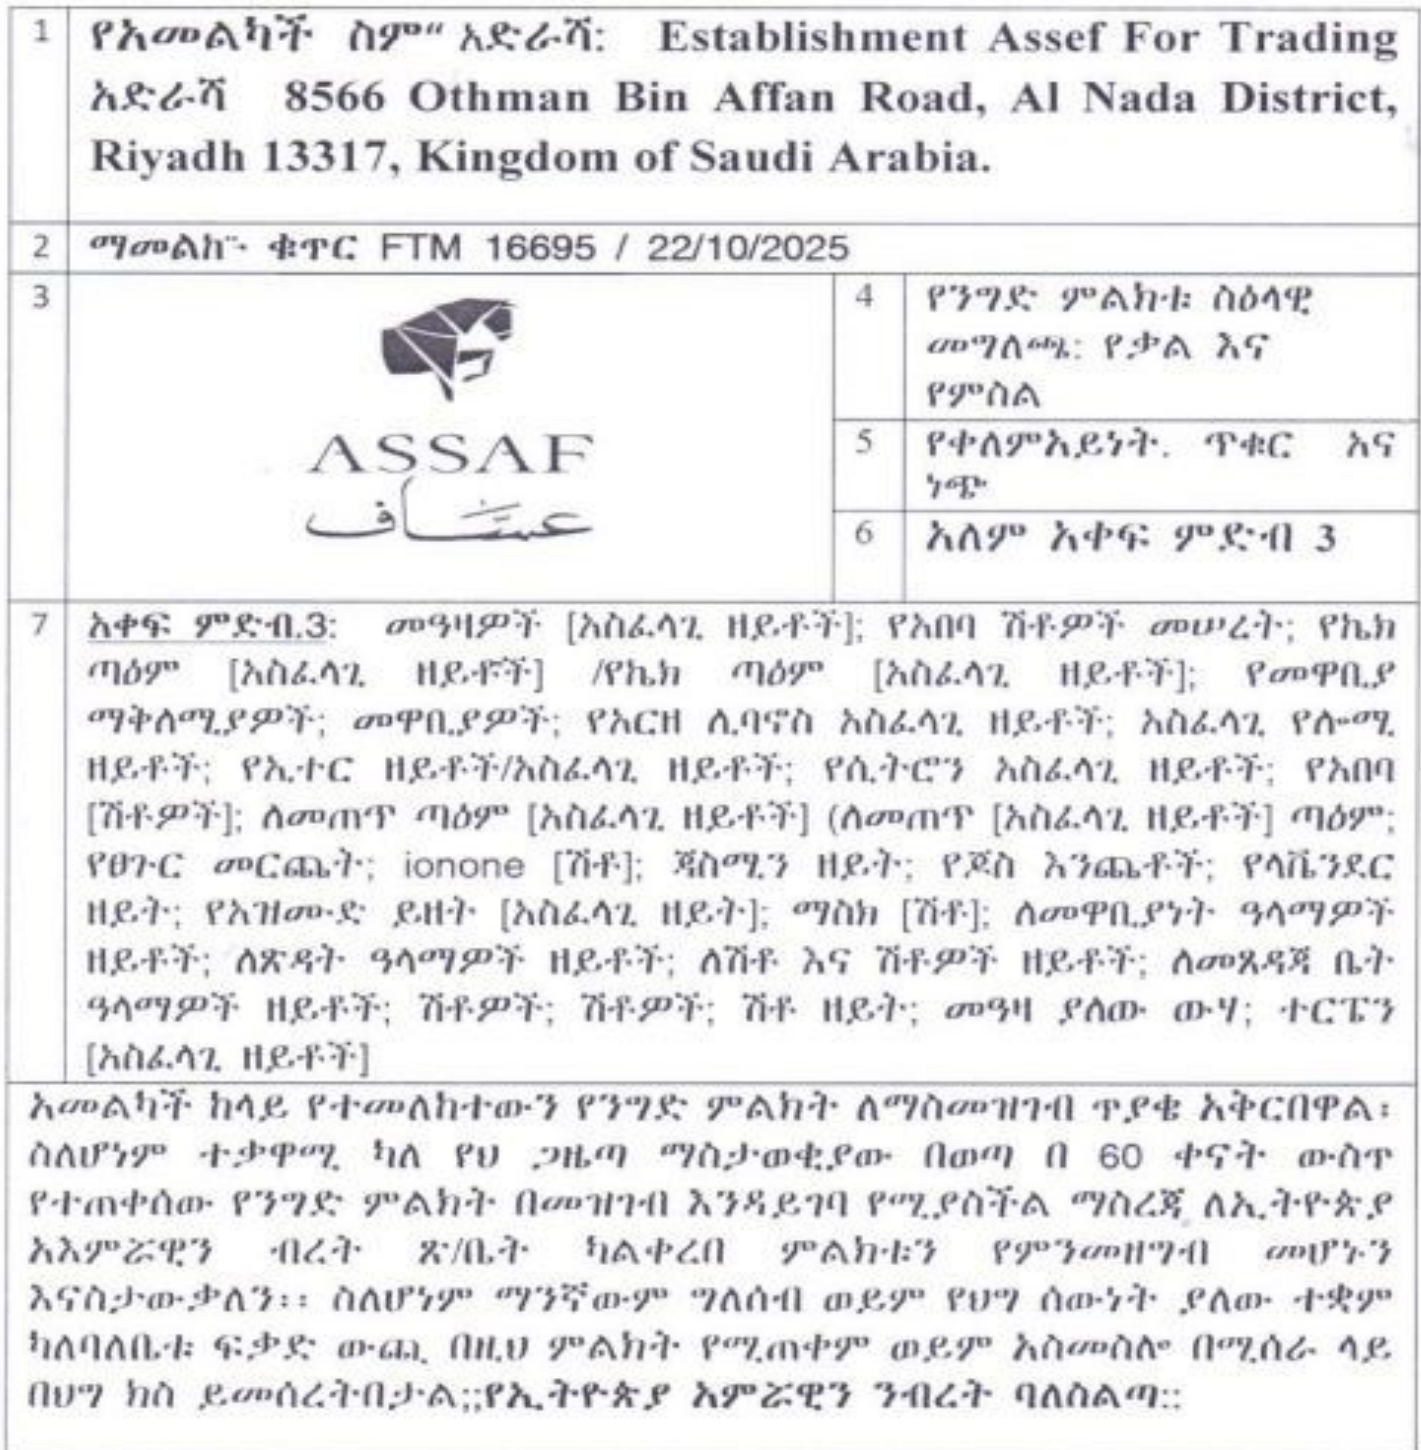 1 የአመልካች ስም“ አድራሻ: Establishment Assef For Trading
አድራሻ 8566 Othman Bin Affan Road, Al Nada District,
Riyadh 13317, Kingdom of Saudi Arabia.
2 ማመልከ¨- ቁጥር FTM 16695 / 22/10/2025
3
ASSAF
عسّاف
4 የንግድ ምልክቱ ስዕላዊ
መግለጫ: የቃል እና
የምስል
5 የቀለምአይነት. ጥቁር እና
ነጭ
6 አለም አቀፍ ምድብ 3
7 አቀፍ ምድብ.3: መዓዛዎች [አስፈላጊ ዘይቶች]; የአበባ ሽቶዎች መሠረት; የኬክ
ጣዕም [አስፈላጊ ዘይቶች] /የኬክ ጣዕም [አስፈላጊ ዘይቶች]; የመዋቢያ
ማቅለሚያዎች; መዋቢያዎች; የአርዘ ሊባኖስ አስፈላጊ ዘይቶች; አስፈላጊ የሎሚ
ዘይቶች; የኢተር ዘይቶች/አስፈላጊ ዘይቶች; የሲትሮን አስፈላጊ ዘይቶች; የአበባ
[ሽቶዎች]; ለመጠጥ ጣዕም [አስፈላጊ ዘይቶች] (ለመጠጥ [አስፈላጊ ዘይቶች] ጣዕም;
የፀጉር መርጨት; ionone [ሽቶ]; ጃስሚን ዘይት; የጆስ እንጨቶች; የላቬንደር
ዘይት; የአዝሙድ ይዘት [አስፈላጊ ዘይት]; ማስክ [ሽቶ]; ለመዋቢያነት ዓላማዎች
ዘይቶች; ለጽዳት ዓላማዎች ዘይቶች; ለሽቶ እና ሽቶዎች ዘይቶች; ለመጸዳጃ ቤት
ዓላማዎች ዘይቶች; ሽቶዎች; ሽቶዎች; ሽቶ ዘይት; መዓዛ ያለው ውሃ; ተርፔን
[አስፈላጊ ዘይቶች]
አመልካች ከላይ የተመለከተውን የንግድ ምልክት ለማስመዝገብ ጥያቄ አቅርበዋል፡
ስለሆነም ተቃዋሚ ካለ የህ ጋዜጣ ማስታወቂያው በወጣ በ 60 ቀናት ውስጥ
የተጠቀሰው የንግድ ምልክት በመዝገብ እንዳይገባ የሚያስችል ማስረጃ ለኢትዮጵያ
አእምሯዊን ብረት ጽ/ቤት ካልቀረበ ምልክቱን የምንመዘግብ መሆኑን
እናስታውቃለን፡፡ ስለሆነም ማንኛውም ግለሰብ ወይም የህግ ሰውነት ያለው ተቋም
ካለባለቤቱ ፍቃድ ውጪ በዚህ ምልክት የሚጠቀም ወይም አስመስሎ በሚሰራ ላይ
በህግ ክስ ይመሰረትበታል;;የኢትዮጵያ አምሯዊን ንብረት ባለስልጣ፡፡